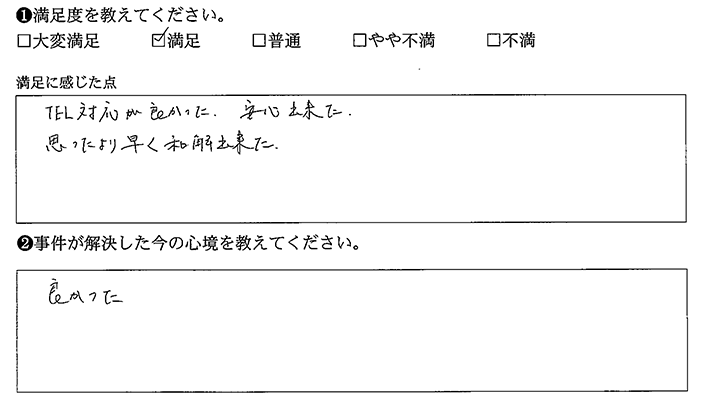 ❶満足度を教えてください。
□大変満足 ☑満足 □普通 □やや不満 □不満
満足に感じた点
TEL対応が良かった. 安心出来た.
思ったより早く和解出来た.
❷事件が解決した今の心境を教えてください。
良かった